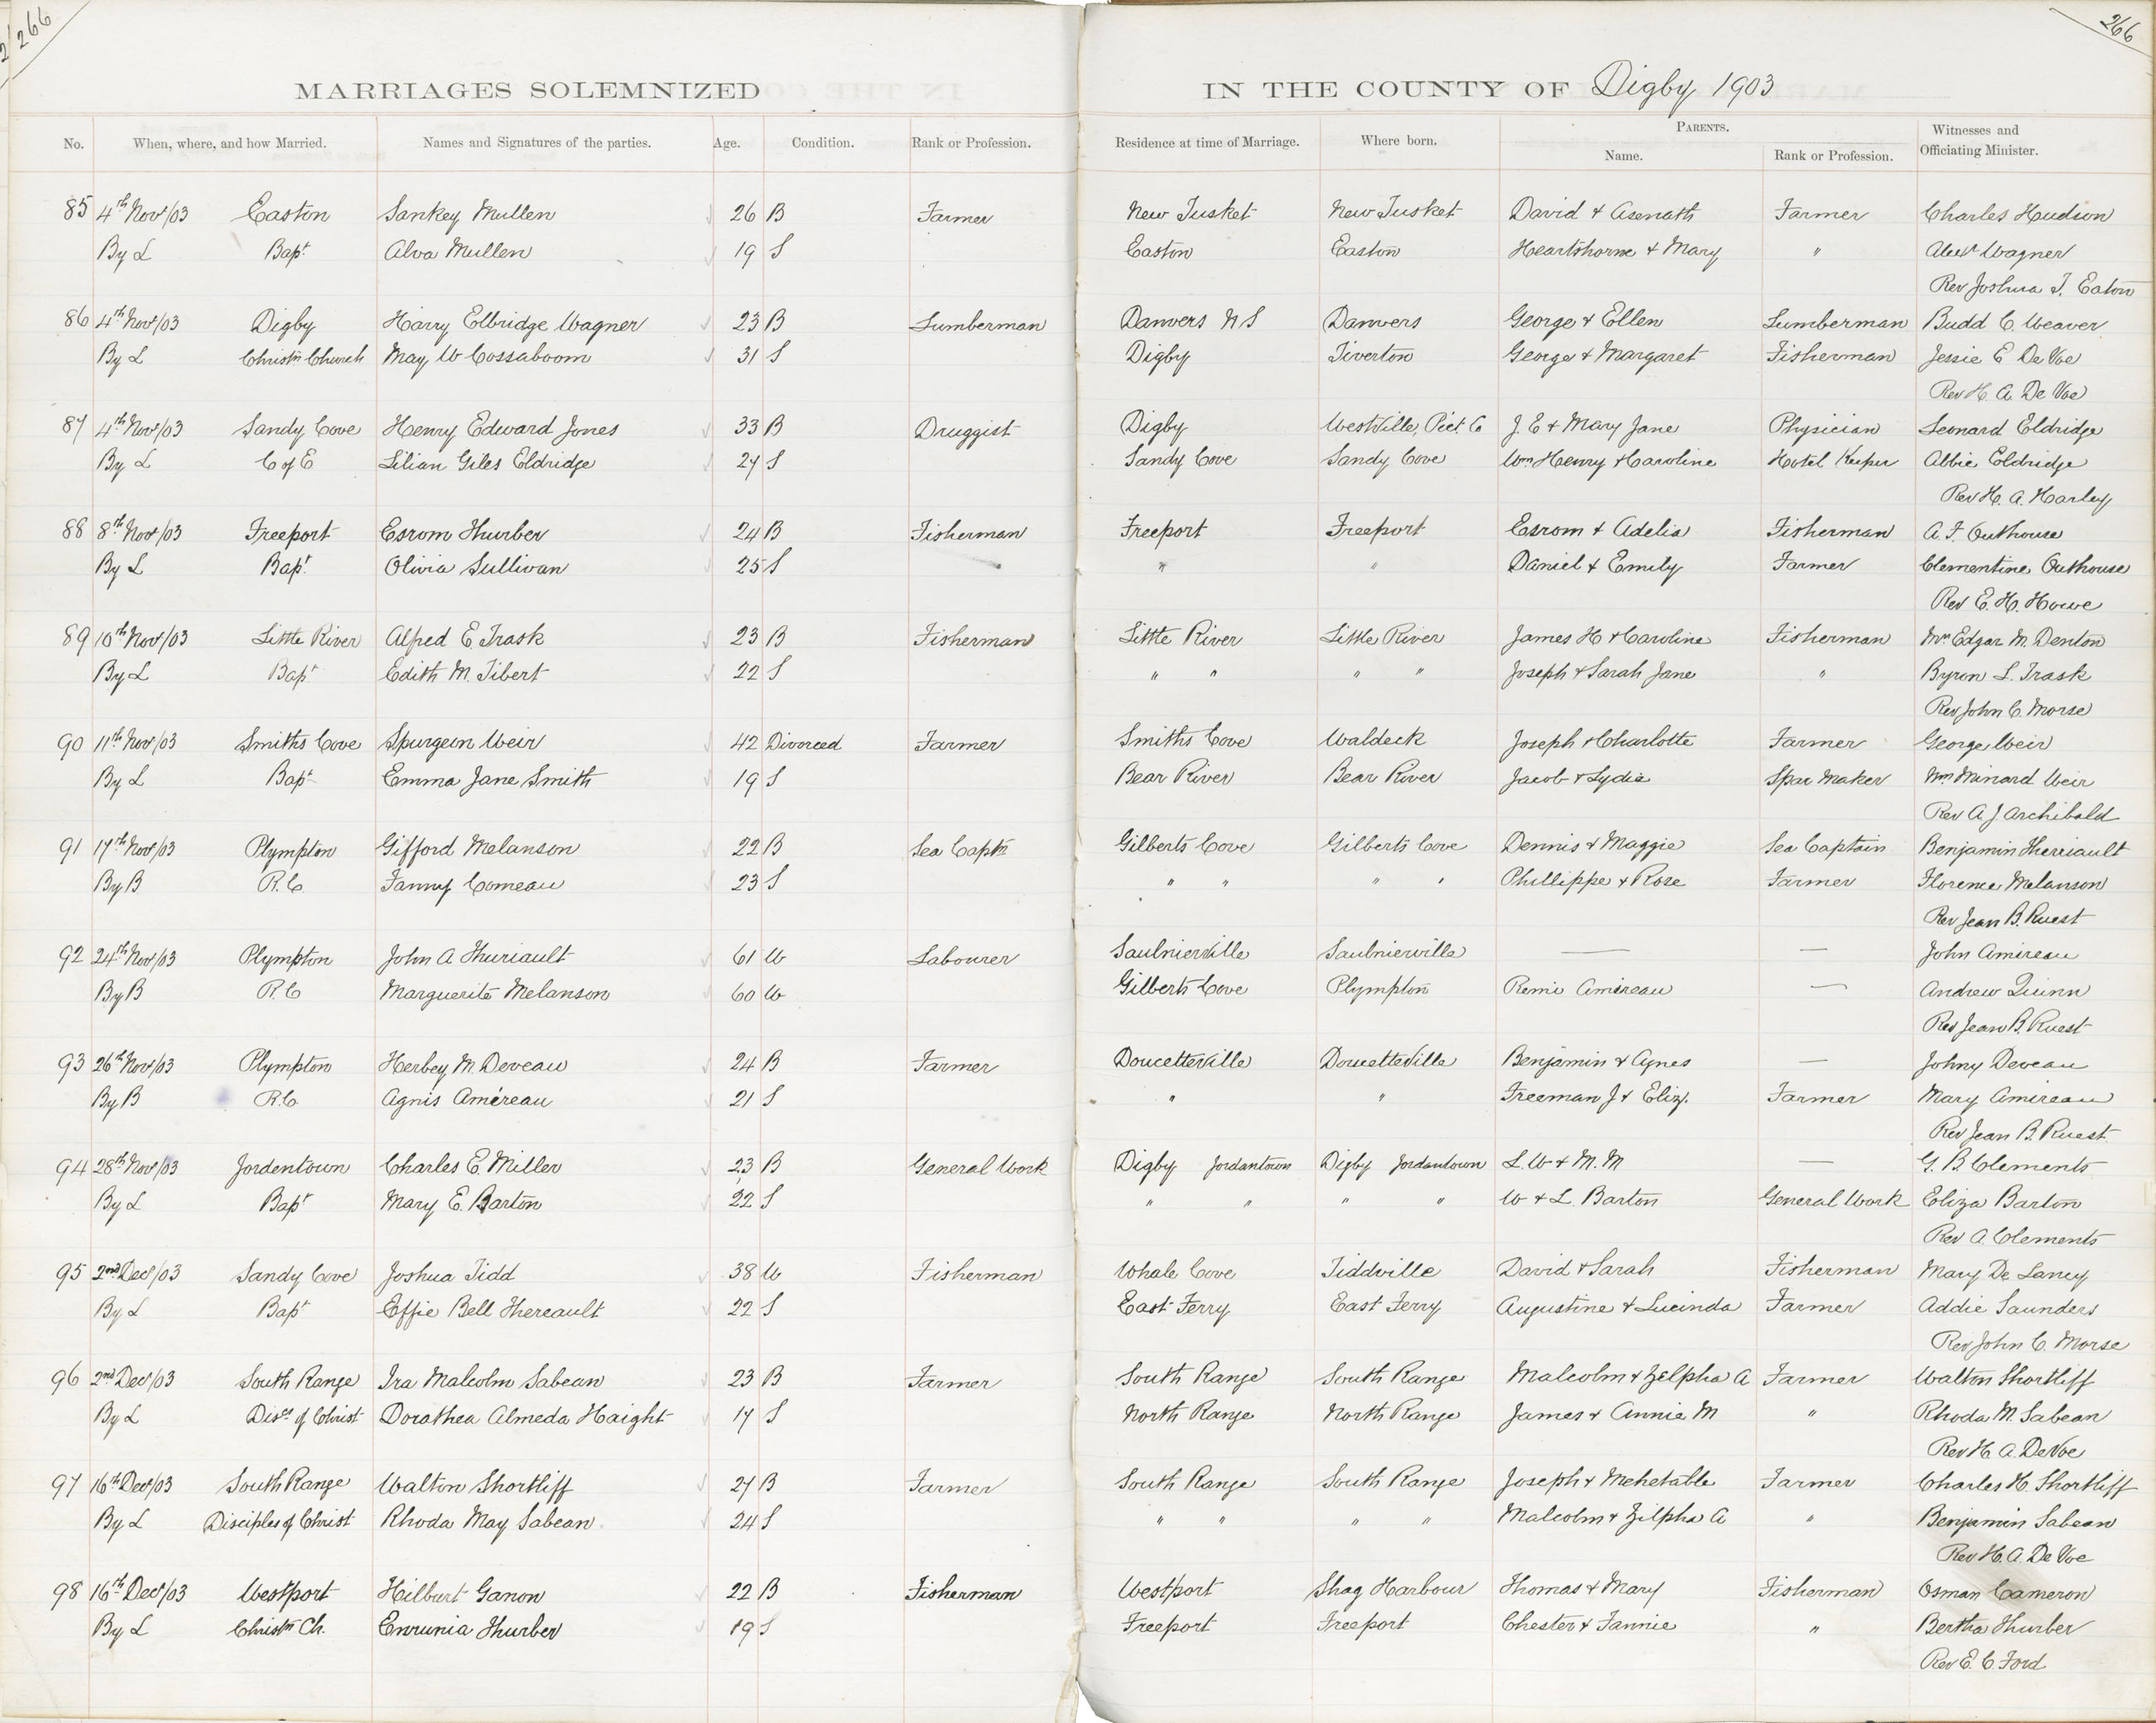 266
266
MARRIAGES SOLEMNIZED IN THE COUNTY OF Digby 1903
No. When, where, and how Married. Names and Signatures of the parties. Age. Condition. Rank or Profession. Residence at time of Marriage. Where born. PARENTS. Name. Rank or Profession. Witnesses and Officiating Minister.
85 4th Nov/03 Easton Sankey Mullen 26 B Farmer New Tusket New Tusket David & Asenath Farmer Charles Hudson
By L Bapt Alva Mullen 19 S Easton Easton Heartshorne & Mary " Alexr Wagner
Rev Joshua T. Eaton
86 4th Nov/03 Digby Harry Elbridge Wagner 23 B Lumberman Danvers N S Danvers George & Ellen Lumberman Budd C. Weaver
By L Christn Church May W Cossaboom 31 S Digby Tiverton George & Margaret Fisherman Jessie E De Voe
Rev H. A. De Voe
87 4th Nov/03 Sandy Cove Henry Edward Jones 33 B Druggist Digby Westville, Pict. Co J. E & Mary Jane Physician Leonard Eldridge
By L C of E Lilian Giles Eldridge 27 S Sandy Cove Sandy Cove Wm Henry & Caroline Hotel Keeper Abbie Eldridge
Rev H. A. Harley
88 8th Nov/03 Freeport Esrom Thurber 24 B Fisherman Freeport Freeport Esrom & Adelia Fisherman A. F. Outhouse
By L Bapt Olivia Sullivan 25 S " " Daniel & Emily Farmer Clementine Outhouse
Rev E. H. Howe
89 10th Nov/03 Little River Alfred E Trask 23 B Fisherman Little River Little River James H & Caroline Fisherman Mrs Edgar M. Denton
By L Bapt Edith M. Tibert 22 S " " " " Joseph & Sarah Jane " Byron L. Trask
Rev John C. Morse
90 11th Nov/03 Smiths Cove Spurgeon Weir 42 Divorced Farmer Smiths Cove Waldeck Joseph & Charlotte Farmer George Weir
By L Bapt Emma Jane Smith 19 S Bear River Bear River Jacob & Lydia Spar Maker Mrs Minard Weir
Rev A J Archibald
91 17th Nov/03 Plympton Gifford Melanson 22 B Sea Captn Gilberts Cove Gilberts Cove Dennis & Maggie Sea Captain Benjamin Theriault
By B R. C Fanny Comeau 23 S " " " " Phillippe & Rose Farmer Florence Melanson
Rev Jean B. Ruest
92 24th Nov/03 Plympton John A Thuriault 61 W Labourer Saulnierville Saulnierville — — John Amireau
By B R. C Marguerite Melanson 60 W Gilberts Cove Plympton Remie Amireau — Andrew Quinn
Rev Jean B. Ruest
93 26th Nov/03 Plympton Herbey M. Deveau 24 B Farmer Doucetteville Doucetteville Benjamin & Agnes — Johny Deveau
By B R. C Agnis Amireau 21 S " " Freeman J & Eliz. Farmer Mary Amireau
Rev Jean B. Ruest
94 28th Nov/03 Jordentown Charles E. Miller 23 B General Work Digby Jordantown Digby Jordantown L. W & M. M — G. B Clements
By L Bapt Mary E. Barton 22 S " " " " W & L. Barton General Work Eliza Barton
Rev A. Clements
95 2nd Dec/03 Sandy Cove Joshua Tidd 38 W Fisherman Whale Cove Tiddville David & Sarah Fisherman Mary De Laney
By L Bapt Effie Bell Thereault 22 S East Ferry East Ferry Augustine & Lucinda Farmer Addie Saunders
Rev John C. Morse
96 2nd Dec/03 South Range Ira Malcolm Sabean 23 B Farmer South Range South Range Malcolm & Zelpha A Farmer Walton Shortliff
By L Disc of Christ Dorathea Almeda Haight 17 S North Range North Range James & Annie M " Rhoda M. Sabean
Rev H. A. DeVoe
97 16th Dec/03 South Range Walton Shortliff 27 B Farmer South Range South Range Joseph & Mehetable Farmer Charles H. Shortliff
By L Disciples of Christ Rhoda May Sabean 24 S " " " " Malcolm & Zilpha A " Benjamin Sabean
Rev H. A. De Voe
98 16th Dec/03 Westport Hilburt Ganon 22 B Fisherman Westport Shag Harbour Thomas & Mary Fisherman Osman Cameron
By L Christn Ch. Enrunia Thurber 19 S Freeport Freeport Chester & Fannie " Bertha Thurber
Rev E. C Ford